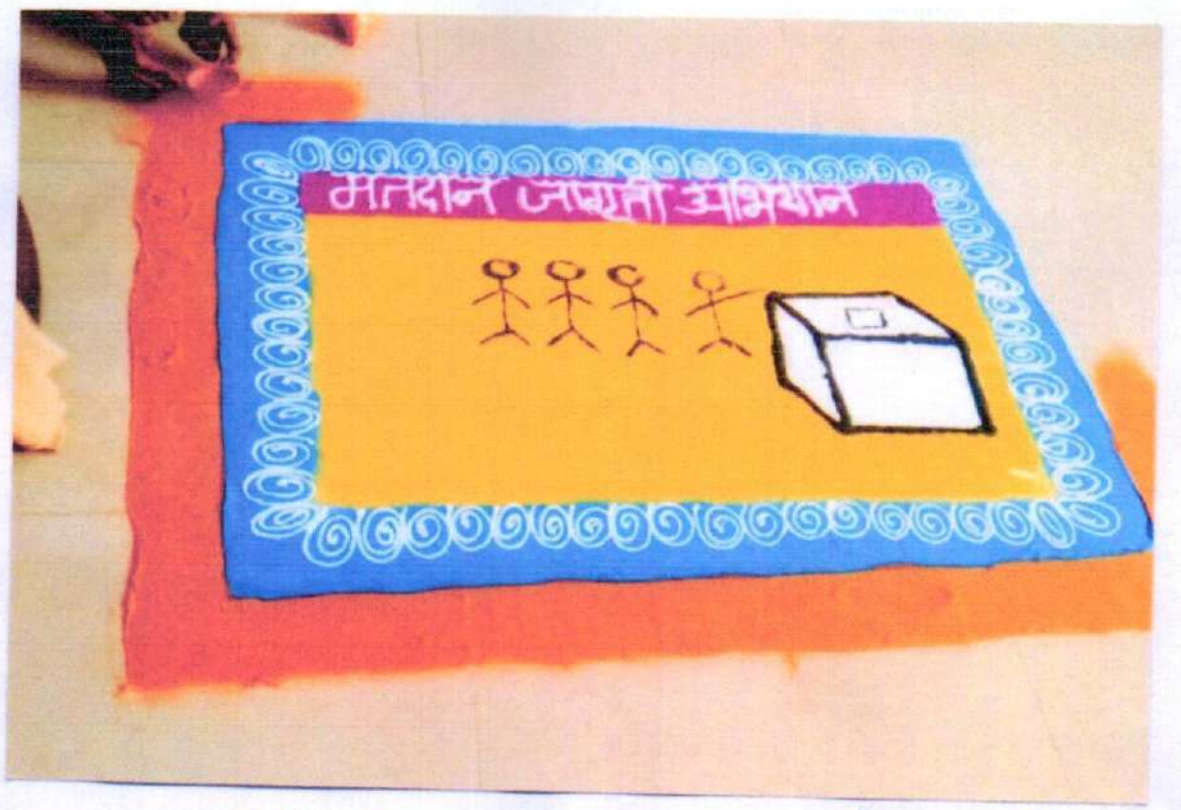 मतदान जागृती अभियान